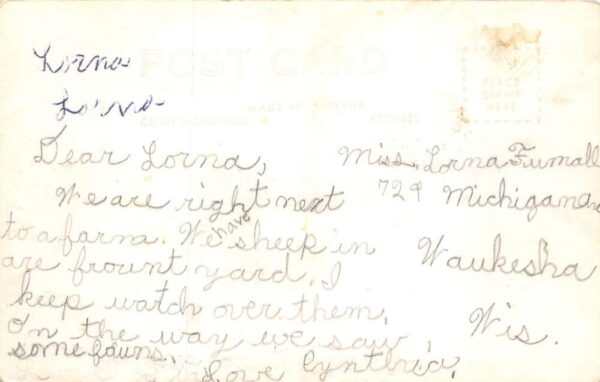 Lorna
Lorna
POST CARD
PLACE
STAMP
HERE
MADE IN CANADA
CORRESPONDENCE
ADDRESS
Dear Lorna,
We are right next
to a farm. We have sheep in
are frount yard. I
keep watch over them.
On the way we saw
some fauns.
Love Cynthia.
Miss. Lorna
724 Michigan
Waukesha
Wis.